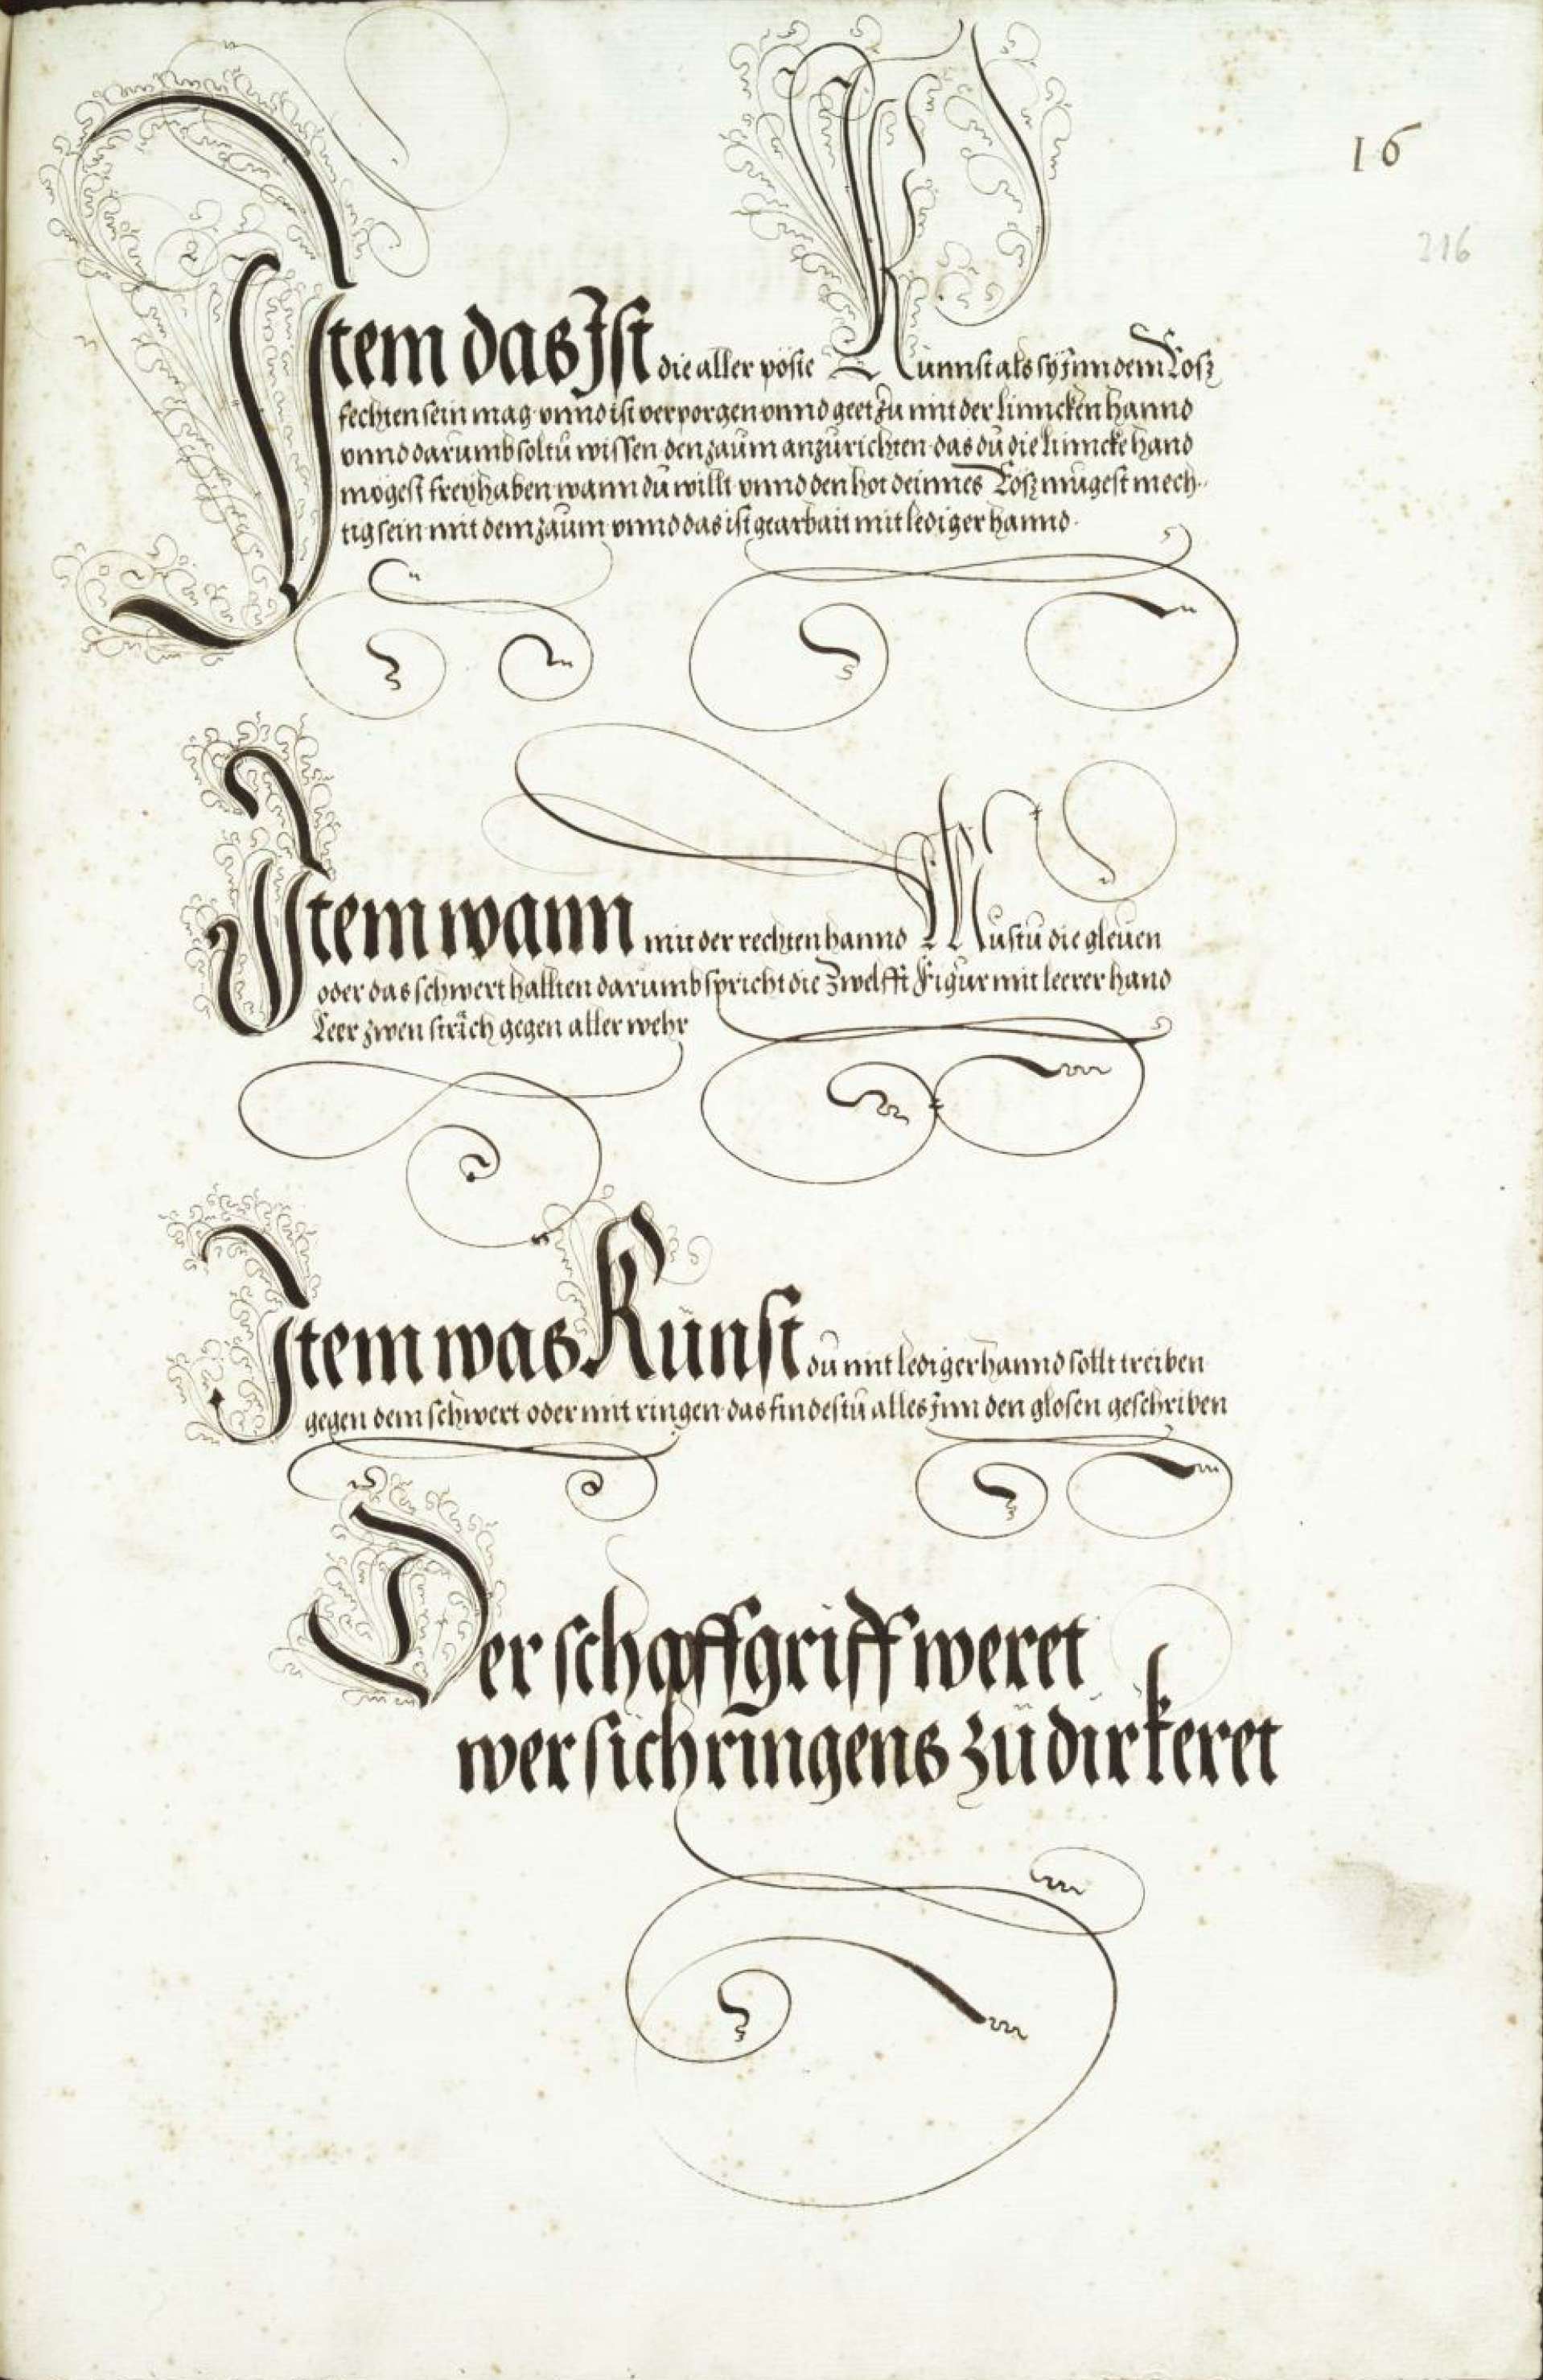 16
216
Item das Ist die aller pöste Kunnst als sy Jnn dem Roß
fechten sein mag vnnd ist verporgen vnnd geet zu mit der linncken hannd
vnnd darumb soltu wissen den zaum anzurichten das du die linncke hand
mögest frey haben wann du willt vnnd den hot deinnes Roß mugest mech-
tig sein mit dem zaum vnnd das ist gearbait mit lediger hannd
Item wann mit der rechten hannd Mustu die gleuen
oder das schwert hallten darumb spricht die Zwelfft Figur mit leerer hand
Leer zwen sträch gegen aller wehr
Item was Kunst du mit lediger hannd sollt treiben
gegen dem schwert oder mit ringen das findestu alles Jnn den glosen geschriben
Der schaffgriff weret
wer sich ringens zu dir keret